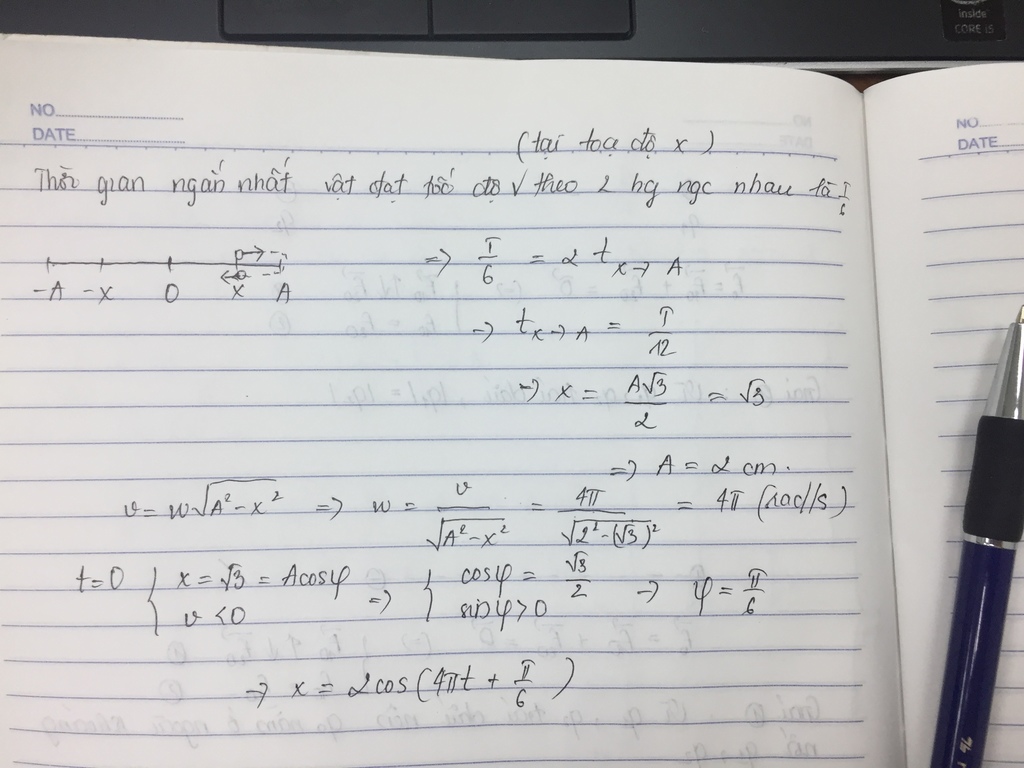 NO.
DATE
(tại tọa độ x)
Thời gian ngắn nhất vật đạt tốc độ v theo 2 hg ngc nhau là T/6
-A -x O x A
=> T/6 = 2 t x→A
=> t x→A = T/12
=> x = A√3/2 = √3
=> A = 2 cm.
v = w√(A² - x²) => w = v/√(A² - x²) = 4π/√(2² - (√3)²) = 4π (rad/s)
t=0 { x = √3 = Acosφ => { cosφ = √3/2 => φ = π/6
{ v < 0 { sinφ > 0
=> x = 2cos(4πt + π/6)
NO.
DATE
inside
CORE i5